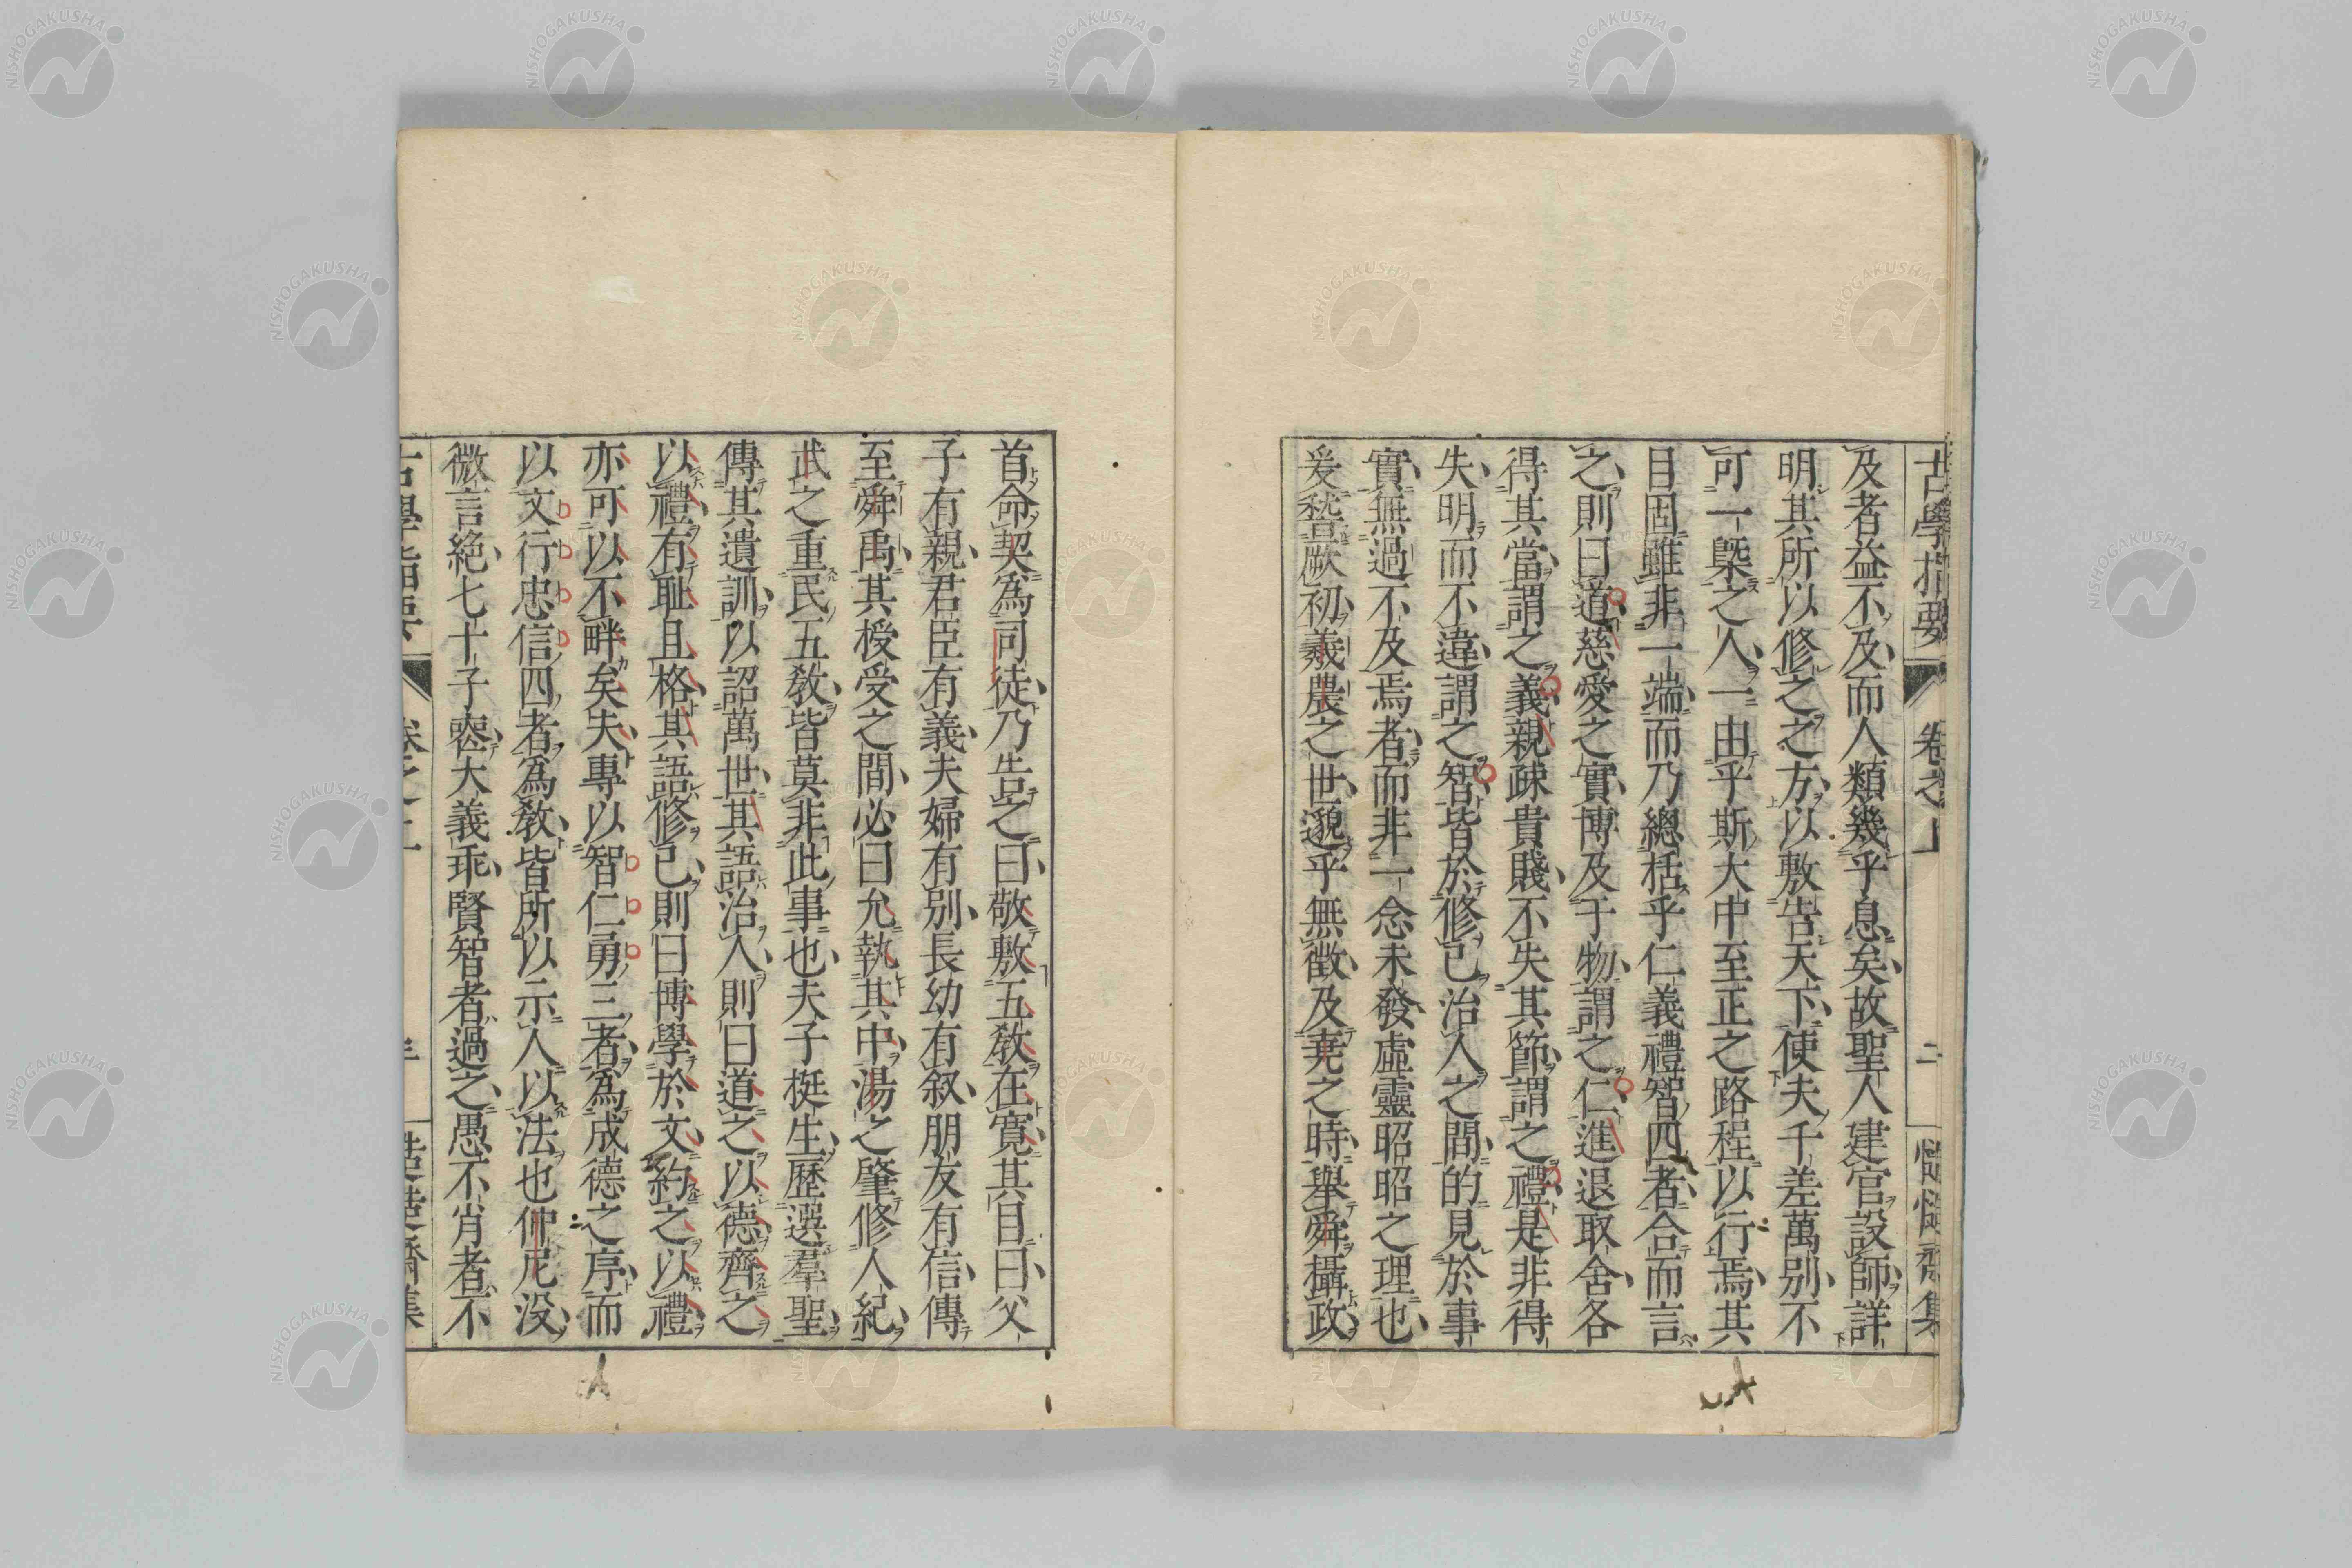 古學指要 卷之上 二 慥慥齋集
及者益不及而人類幾乎息矣故聖人建官設師詳
明其所以修之之方以敷告天下使夫千差萬別不
可一槩之人一由乎斯大中至正之路程以行焉其
目固雖非一端而乃總括乎仁義禮智四者合而言
之則曰道慈愛之實博及于物謂之仁進退取舍各
得其當謂之義親疎貴賤不失其節謂之禮是非得
失明而不違謂之智皆於修己治人之間的見於事
實無過不及焉者而非一念未發虛靈昭昭之理也
爰嵆厥初羲農之世邈乎無徵及堯之時舉舜攝政
首命契為司徒乃告之曰敬敷五教在寛其目曰父
子有親君臣有義夫婦有別長幼有叙朋友有信傳
至舜禹其授受之間必曰允執其中湯之肇修人紀
武之重民五教皆莫非此事也夫子梃生歷選羣聖
傳其遺訓以詔萬世其語治人則曰道之以德齊之
以禮有耻且格其語修己則曰博學於文約之以禮
亦可以不畔矣夫專以智仁勇三者為成德之序而
以文行忠信四者為教皆所以示人以法也仲尼没
微言絶七十子喪大義乖賢智者過之愚不肖者不
古學指要 卷之上 三 慥慥齋集
NISHOGAKUSHA